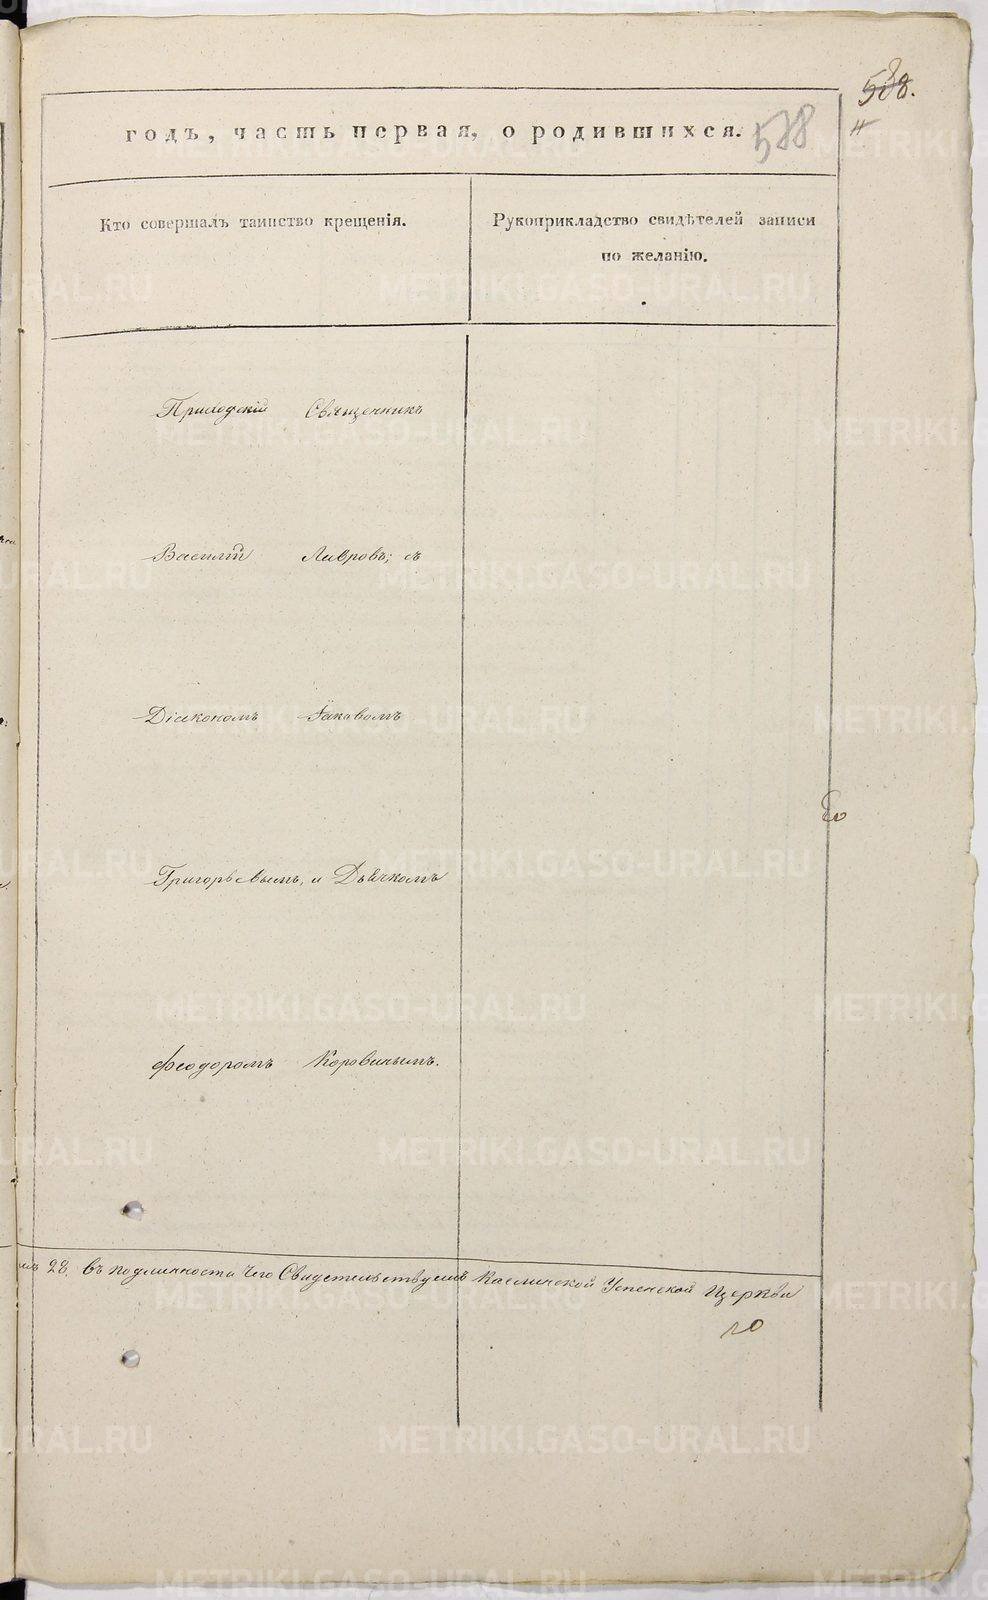 годъ, часть первая, о родившихся.
588
Кто совершалъ таинство крещенія.
Рукоприкладство свидѣтелей записи
по желанію.
Приходскій Священникъ
Василій Лавровъ; съ
Діакономъ Іаковомъ
Григорьевымъ, и Дьячкомъ
Феодоромъ Коровинымъ.
28. въ подлинности чего Свидетельствуемъ Каслинской Успенской Церкви
METRIKI.GASO-URAL.RU